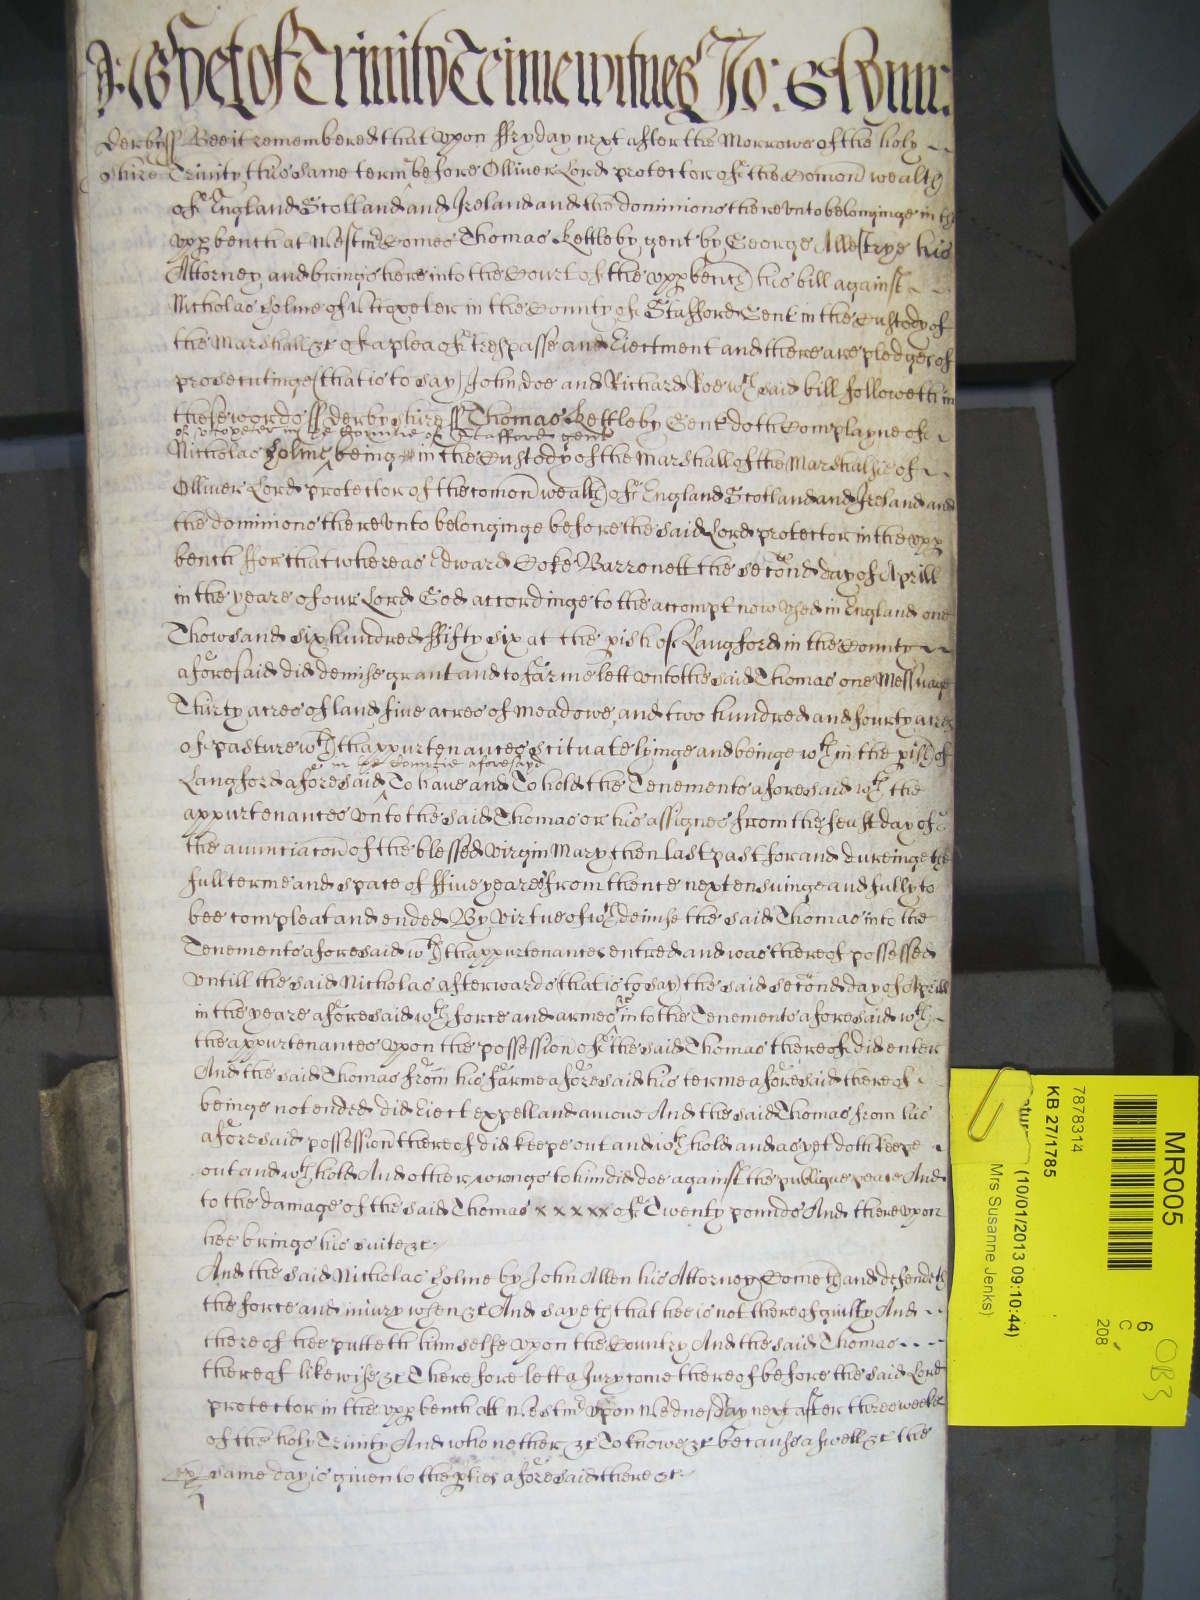 As yet of Trinity Terme witnes Jo: Glynn:
Derbyss Bee it remembered that vpon ffryday next after the Morrowe of the holy
shire Trinity this same terme before Olliver Lord protector of the Comon wealth
of England Scotland and Ireland and the dominions therevnto belonginge in the
vpp bench at Westmr Comes Thomas Kettleby gent by George Allestrye his
Attorney and brings here into the Court of the vpp bench his bill against
Nicholas Holme of Vttoxeter in the County of Stafford Gent in the Custody of
the Marshall &c of a plea of trespasse and Eiectment and there are pledges of
prosecutinge (that is to say) John doe and Richard Roe wch said bill followeth in
these words ss derbyshire ss Thomas Kettleby Gent doth Complayne of
of Vttoxeter in the Countie of Stafford gent
Nicholas Holme being in the Custody of the Marshall of the Marshalsie of
Olliver Lord protector of the comon wealth of England Scotland and Ireland and
the dominions therevnto belonginge before the said Lord protector in the vpp
bench ffor that whereas Edward Coke Barronett the second day of Aprill
in the yeare of our Lord God accordinge to the accompt now vsed in England one
Thowsand six hundred ffifty six at the pish of Langford in the County
aforesaid did demise grant and to farme lett vnto the said Thomas one Messuage
Thirty acres of land five acres of meadowe and two hundred and fourty acres
of pasture wth thappurtenances scituate lyinge and beinge wthin the pish of
in the Countie aforesayd
Langford aforesaid To have and To hold the Tenements aforesaid wth the
appurtenances vnto the said Thomas or his assignes from the feast day of
the anunciacon of the blessed virgin Mary then last past for and dureinge the
full terme and space of ffive yeares from thence next ensuinge and fully to
bee compleat and ended By virtue of wch demise the said Thomas into the
Tenements aforesaid wth thappurtenances entred and was thereof possessed
vntill the said Nicholas afterwards (that is to say) the said second day of Aprill
in the yeare aforesaid wth force and armes &c into the Tenements aforesaid wth
the appurtenances vpon the possession of the said Thomas thereof did enter
And the said Thomas from his farme aforesaid his terme aforesaid thereof
beinge not ended did Eiect expell and amove And the said Thomas from his
aforesaid possession thereof did keepe out and wthhold and as yet doth keepe
out and wthhold And other wrongs to him did doe against the publique peace And
to the damage of the said Thomas x x x xx of Twenty pounds And therevpon
hee brings his suite &c
And the said Nicholas Holme by John Allen his Attorney Cometh and defendeth
the force and iniury when &c And sayeth that hee is not thereof guilty And
thereof hee putteth himselfe vpon the Country And the said Thomas
thereof likewise &c Therefore lett a Jury come thereof before the said Lord
protector in the vpp bench att Westmr vpon Wednesday next after three weeks
of the holy Trinity And who nether &c To knowe &c because aswell &c the
same day is given to the pties aforesaid there &c
MR005
6
C
208
OB3
7878314
KB 27/1785
(10/01/2013 09:10:44)
Mrs Susanne Jenks)